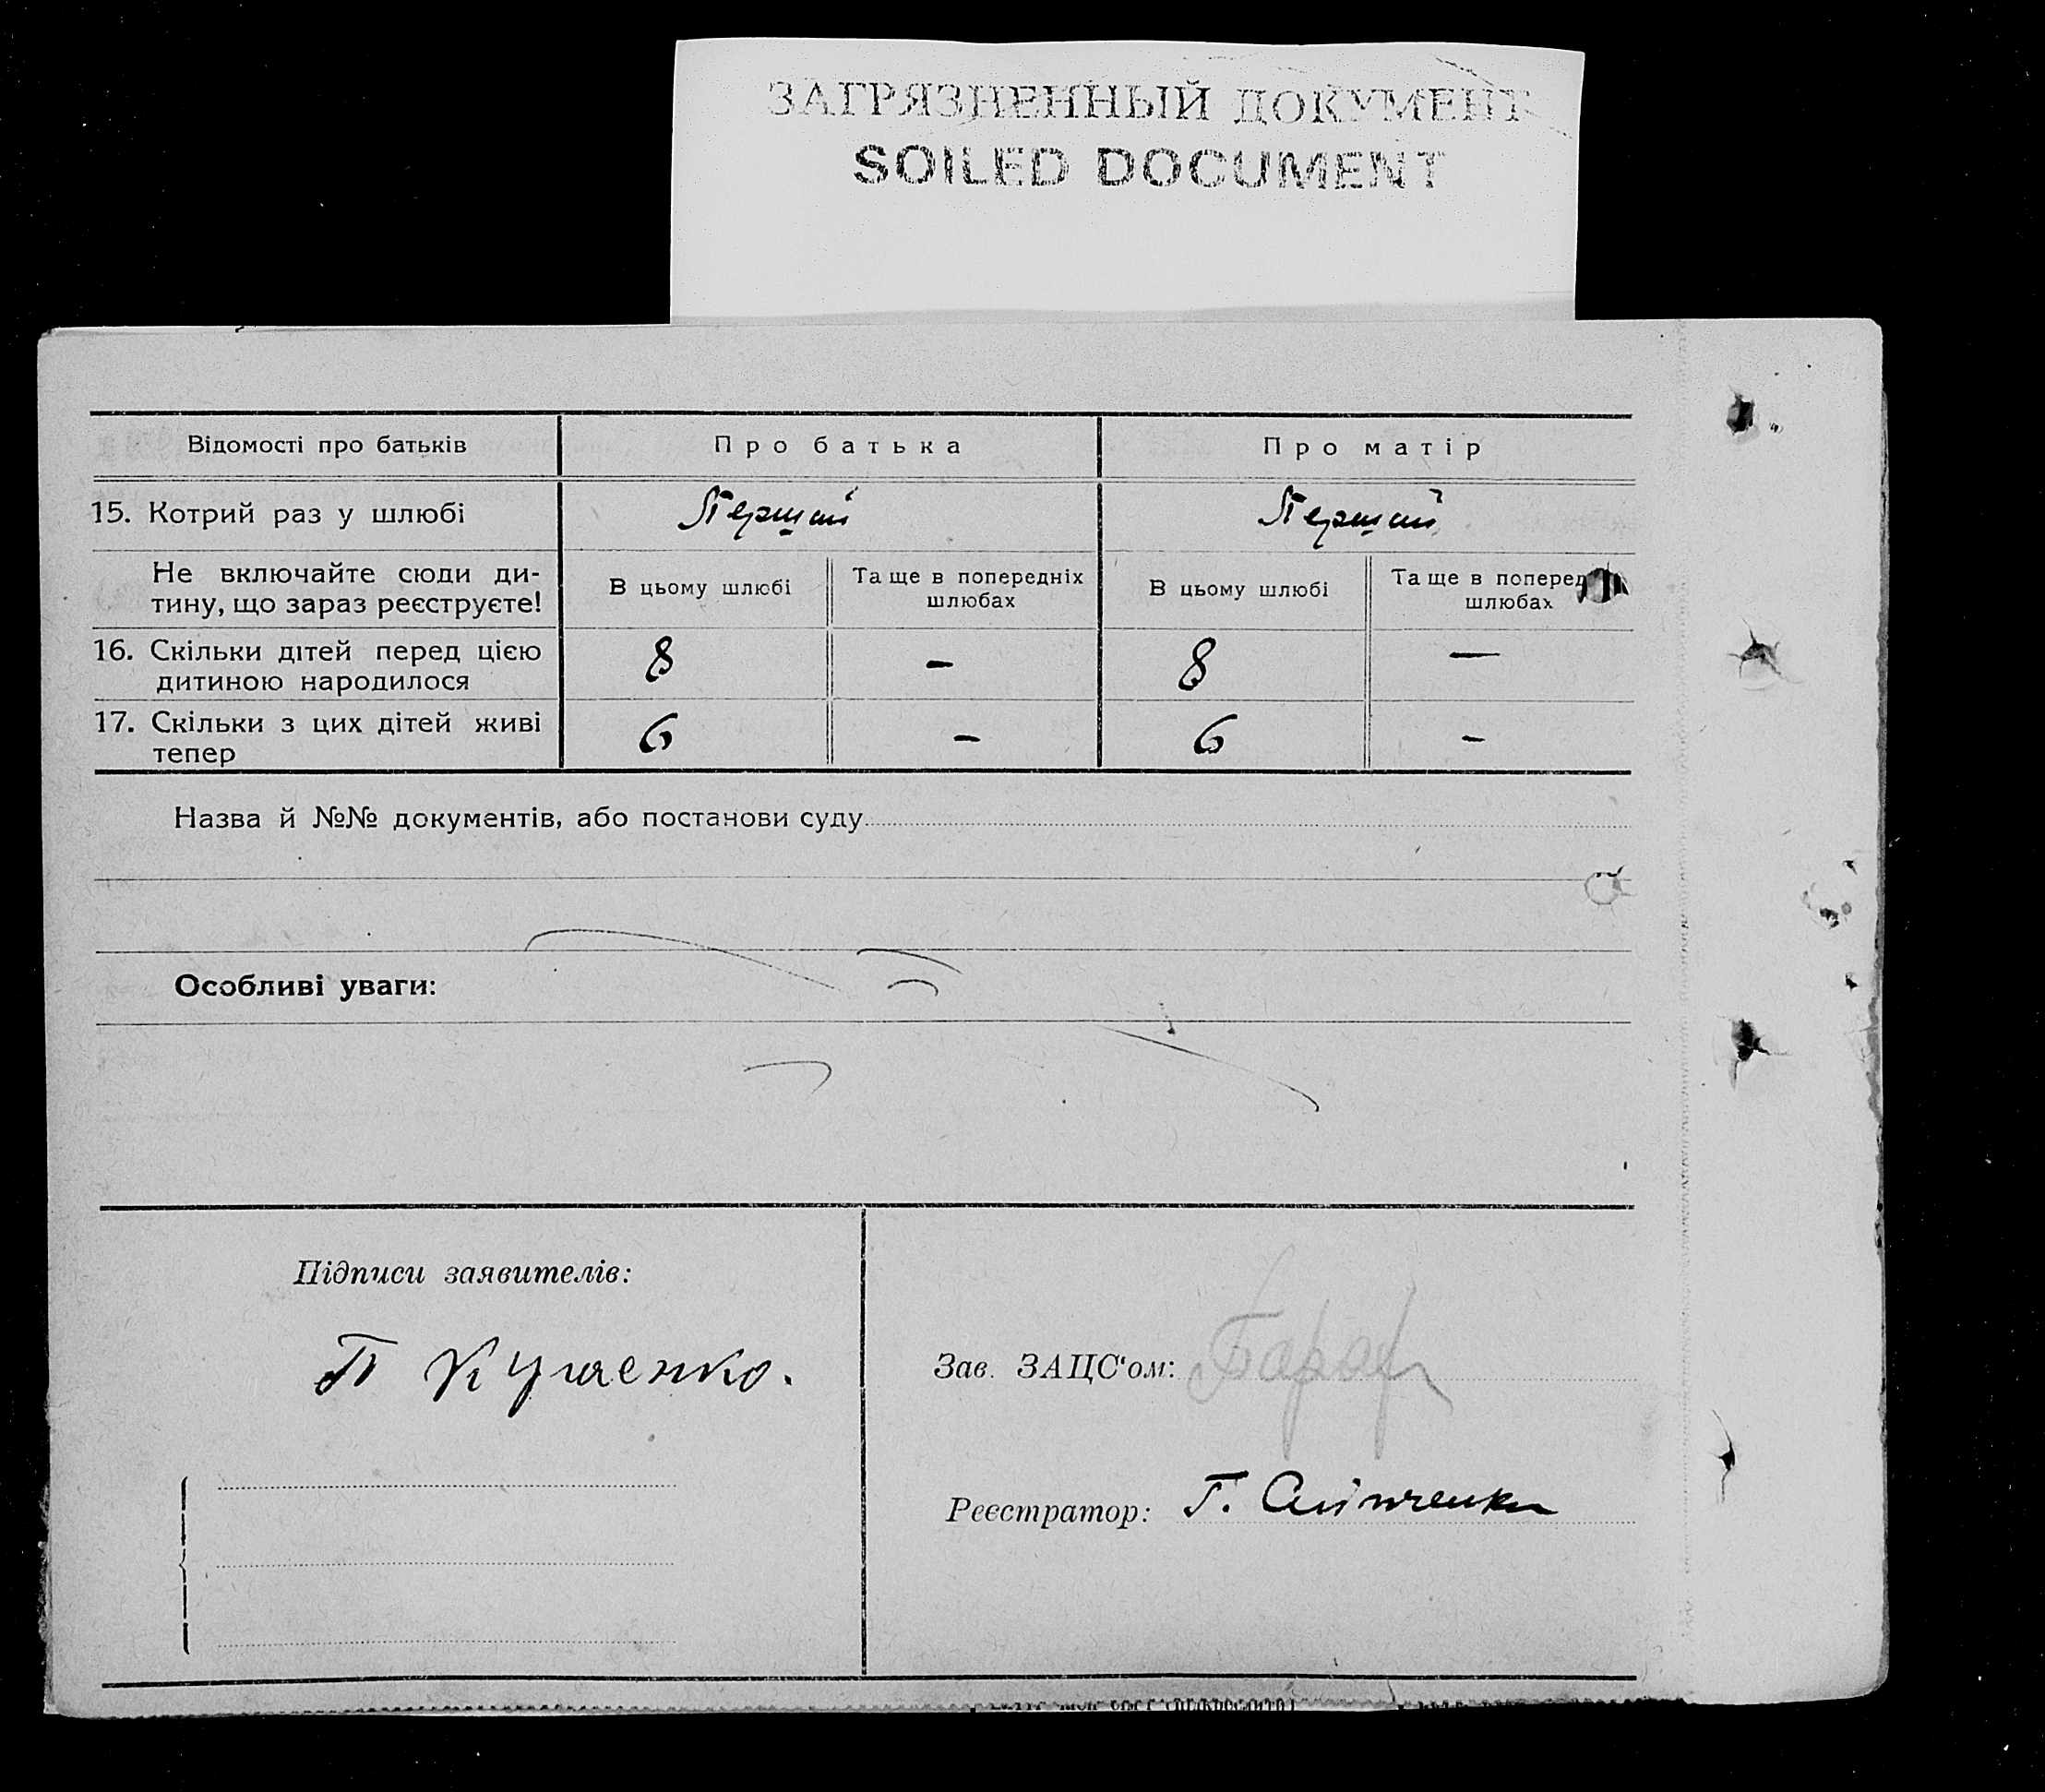 ЗАГРЯЗНЕННЫЙ ДОКУМЕНТ
SOILED DOCUMENT
Відомості про батьків Про батька Про матір
15. Котрий раз у шлюбі Перший Перший
Не включайте сюди ди-
тину, що зараз реєструєте!
В цьому шлюбі
Та ще в попередніх
шлюбах
В цьому шлюбі
Та ще в поперед
шлюбах
16. Скільки дітей перед цією
дитиною народилося
8 — 8 —
17. Скільки з цих дітей живі
тепер
6 — 6 —
Назва й №№ документів, або постанови суду
Особливі уваги:
Підписи заявителів:
П
Зав. ЗАЦС'ом:
Реєстратор: Г.